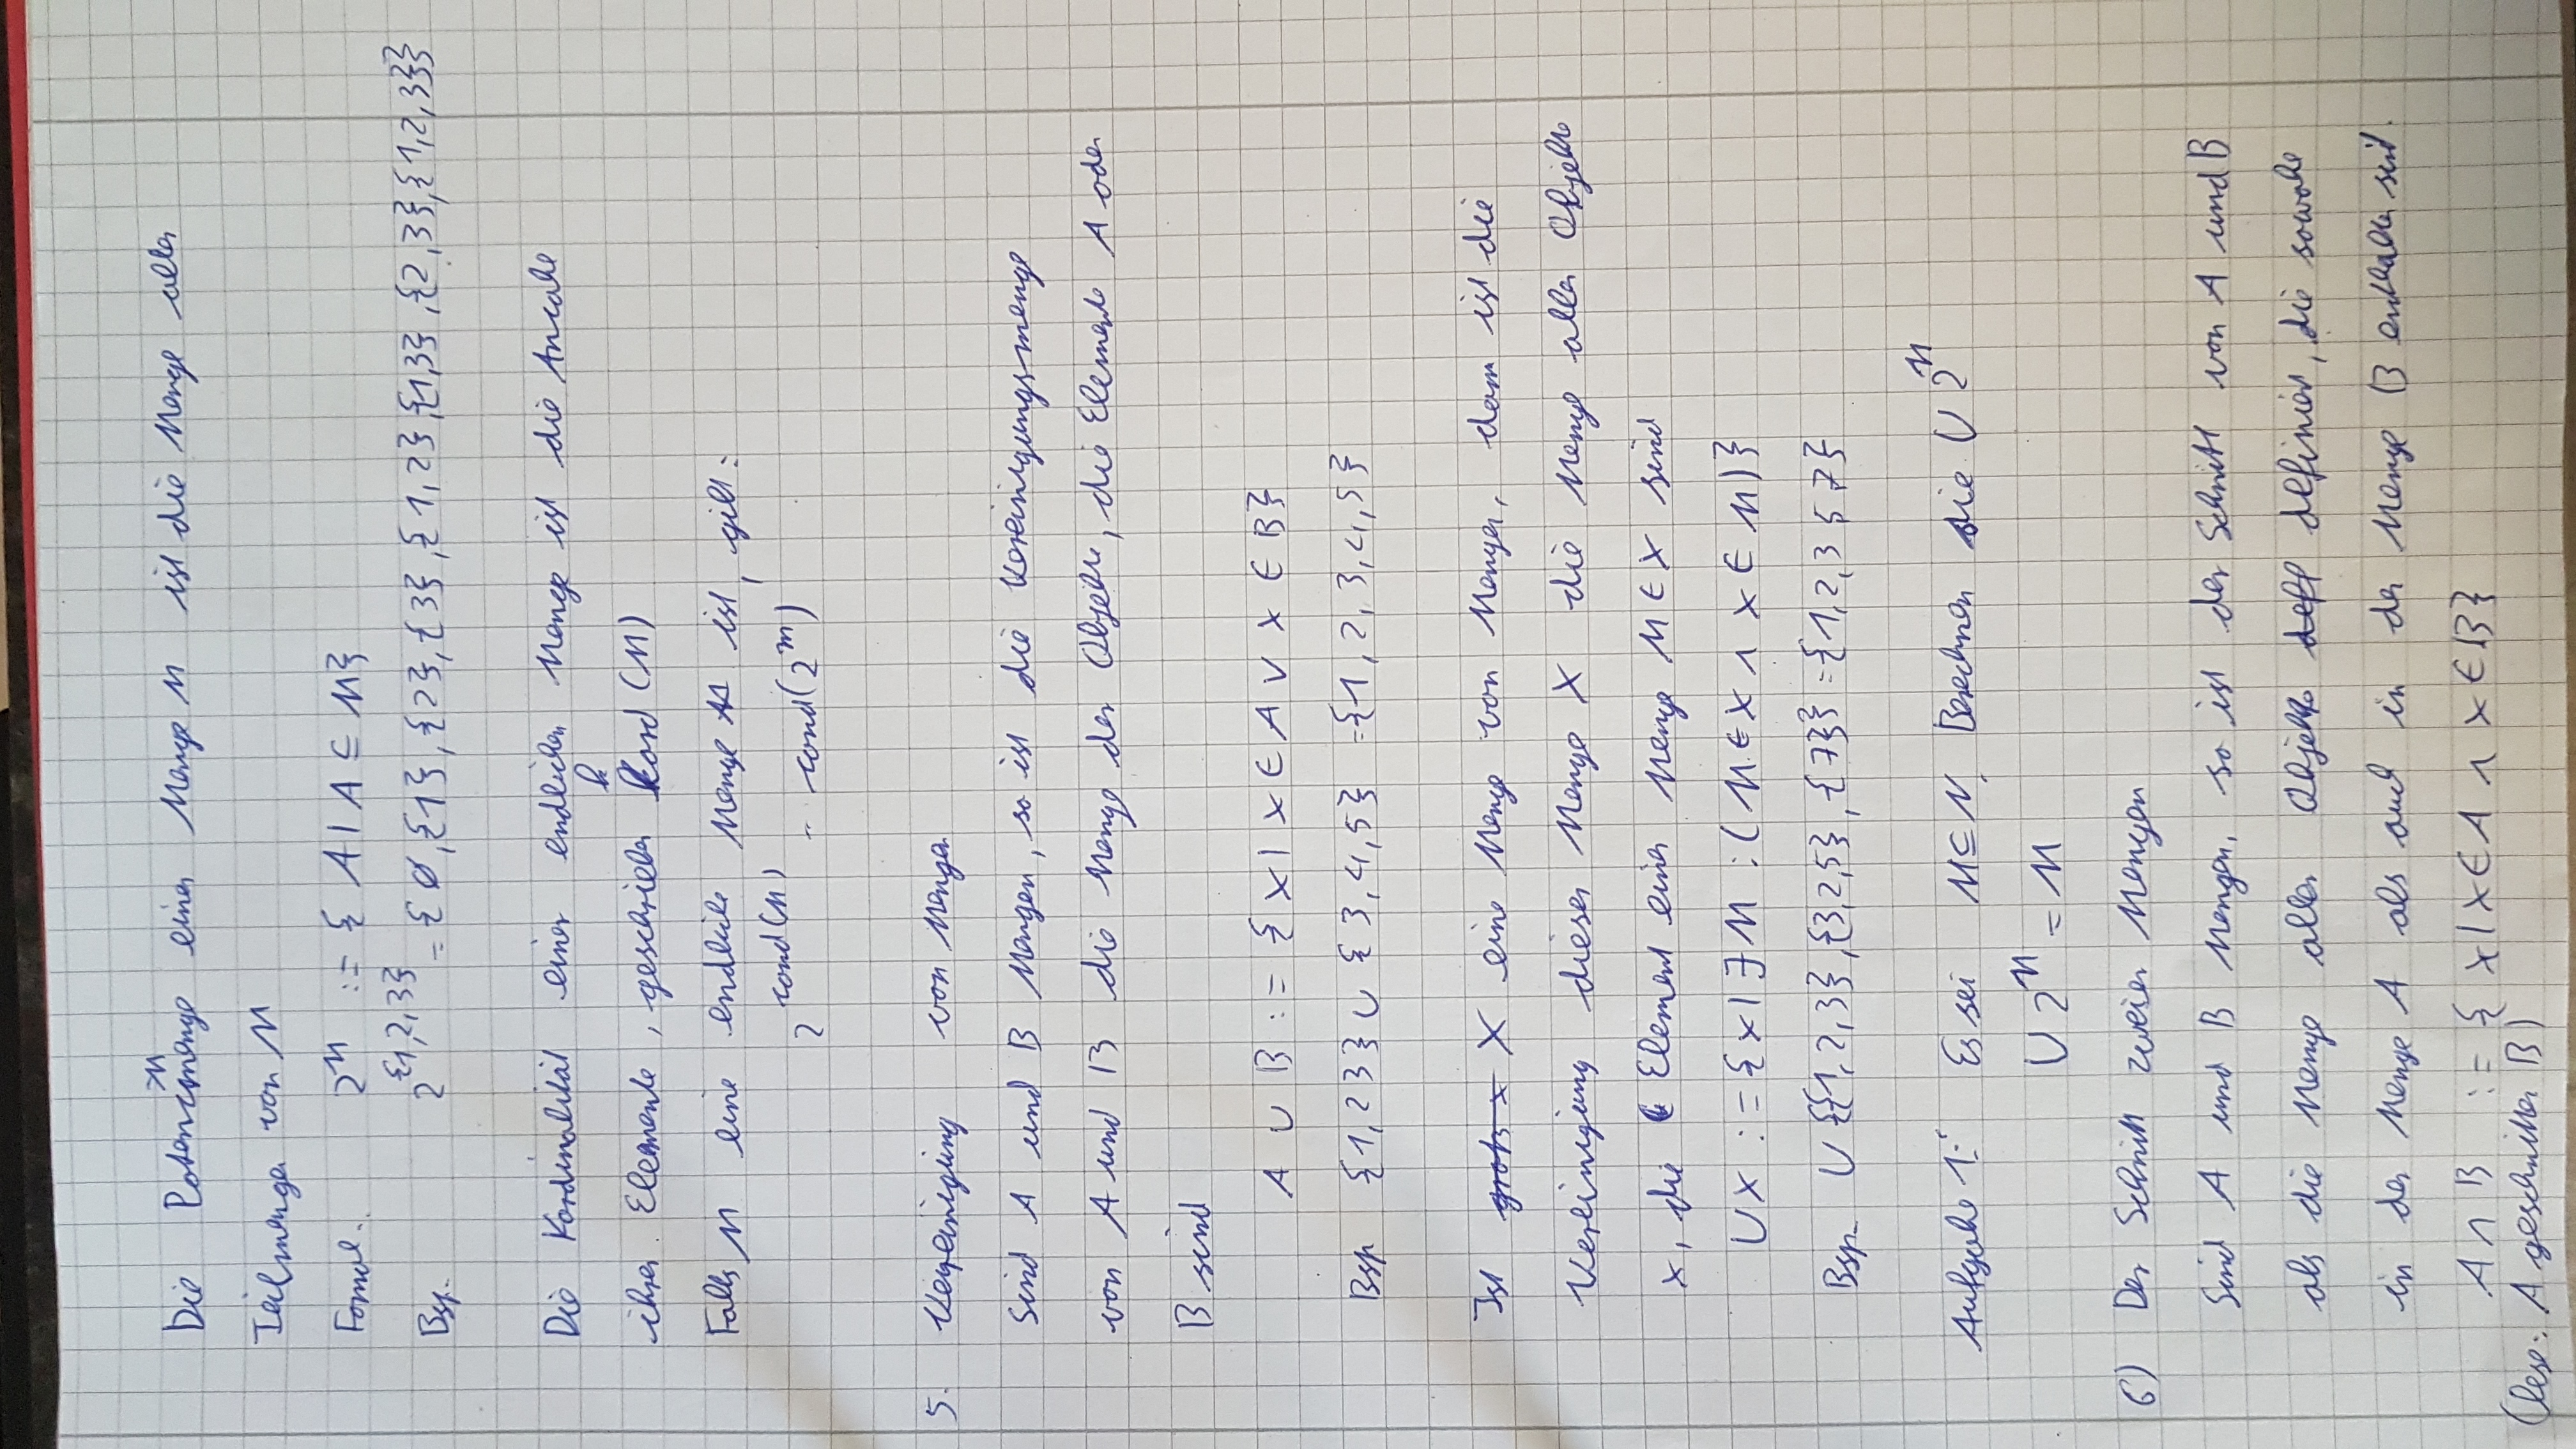 Die Potenzmenge einer Menge M ist die Menge aller
Teilmengen von M
Formal: 2^M := { A | A ⊆ M}
Bsp. 2^{1,2,3} = { ∅, {1}, {2}, {3}, {1,2} {1,3}, {2,3}, {1,2,3}}
Die Kardinalität einer endlichen Menge ist die Anzahl
ihrer Elemente, geschrieben kard (M)
Falls M eine endliche Menge ist, gilt:
2^card(M) = card(2^m)
5. Vereinigung von Mengen
Sind A und B Mengen, so ist die Vereinigungsmenge
von A und B die Menge der Objekte, die Elemente A oder
B sind
A ∪ B := { x | x ∈ A ∨ x ∈ B}
Bsp {1,2 3} ∪ {3,4,5} = {1, 2, 3, 4, 5}
Ist X eine Menge von Mengen, dann ist die
Vereinigung dieser Menge X die Menge aller Objekte
x, die Element einer Menge M ∈ X sind
∪X := {x | ∃ M : (M ∈ X ∧ x ∈ M)}
Bsp. ∪ {{1,2,3}, {3,2,5}, {7}} = {1,2,3 5,7}
Aufgabe 1: Es sei M ⊆ N. Berechnen sie ∪ 2^M
∪ 2^M = M
6) Der Schnitt zweier Mengen
Sind A und B Mengen, so ist der Schnitt von A und B
als die Menge aller Objekte definiert, die sowohl
in der Menge A als auch in der Menge B enthalten sind.
A ∩ B := { x | x ∈ A ∧ x ∈ B}
(lese: A geschnitten B)